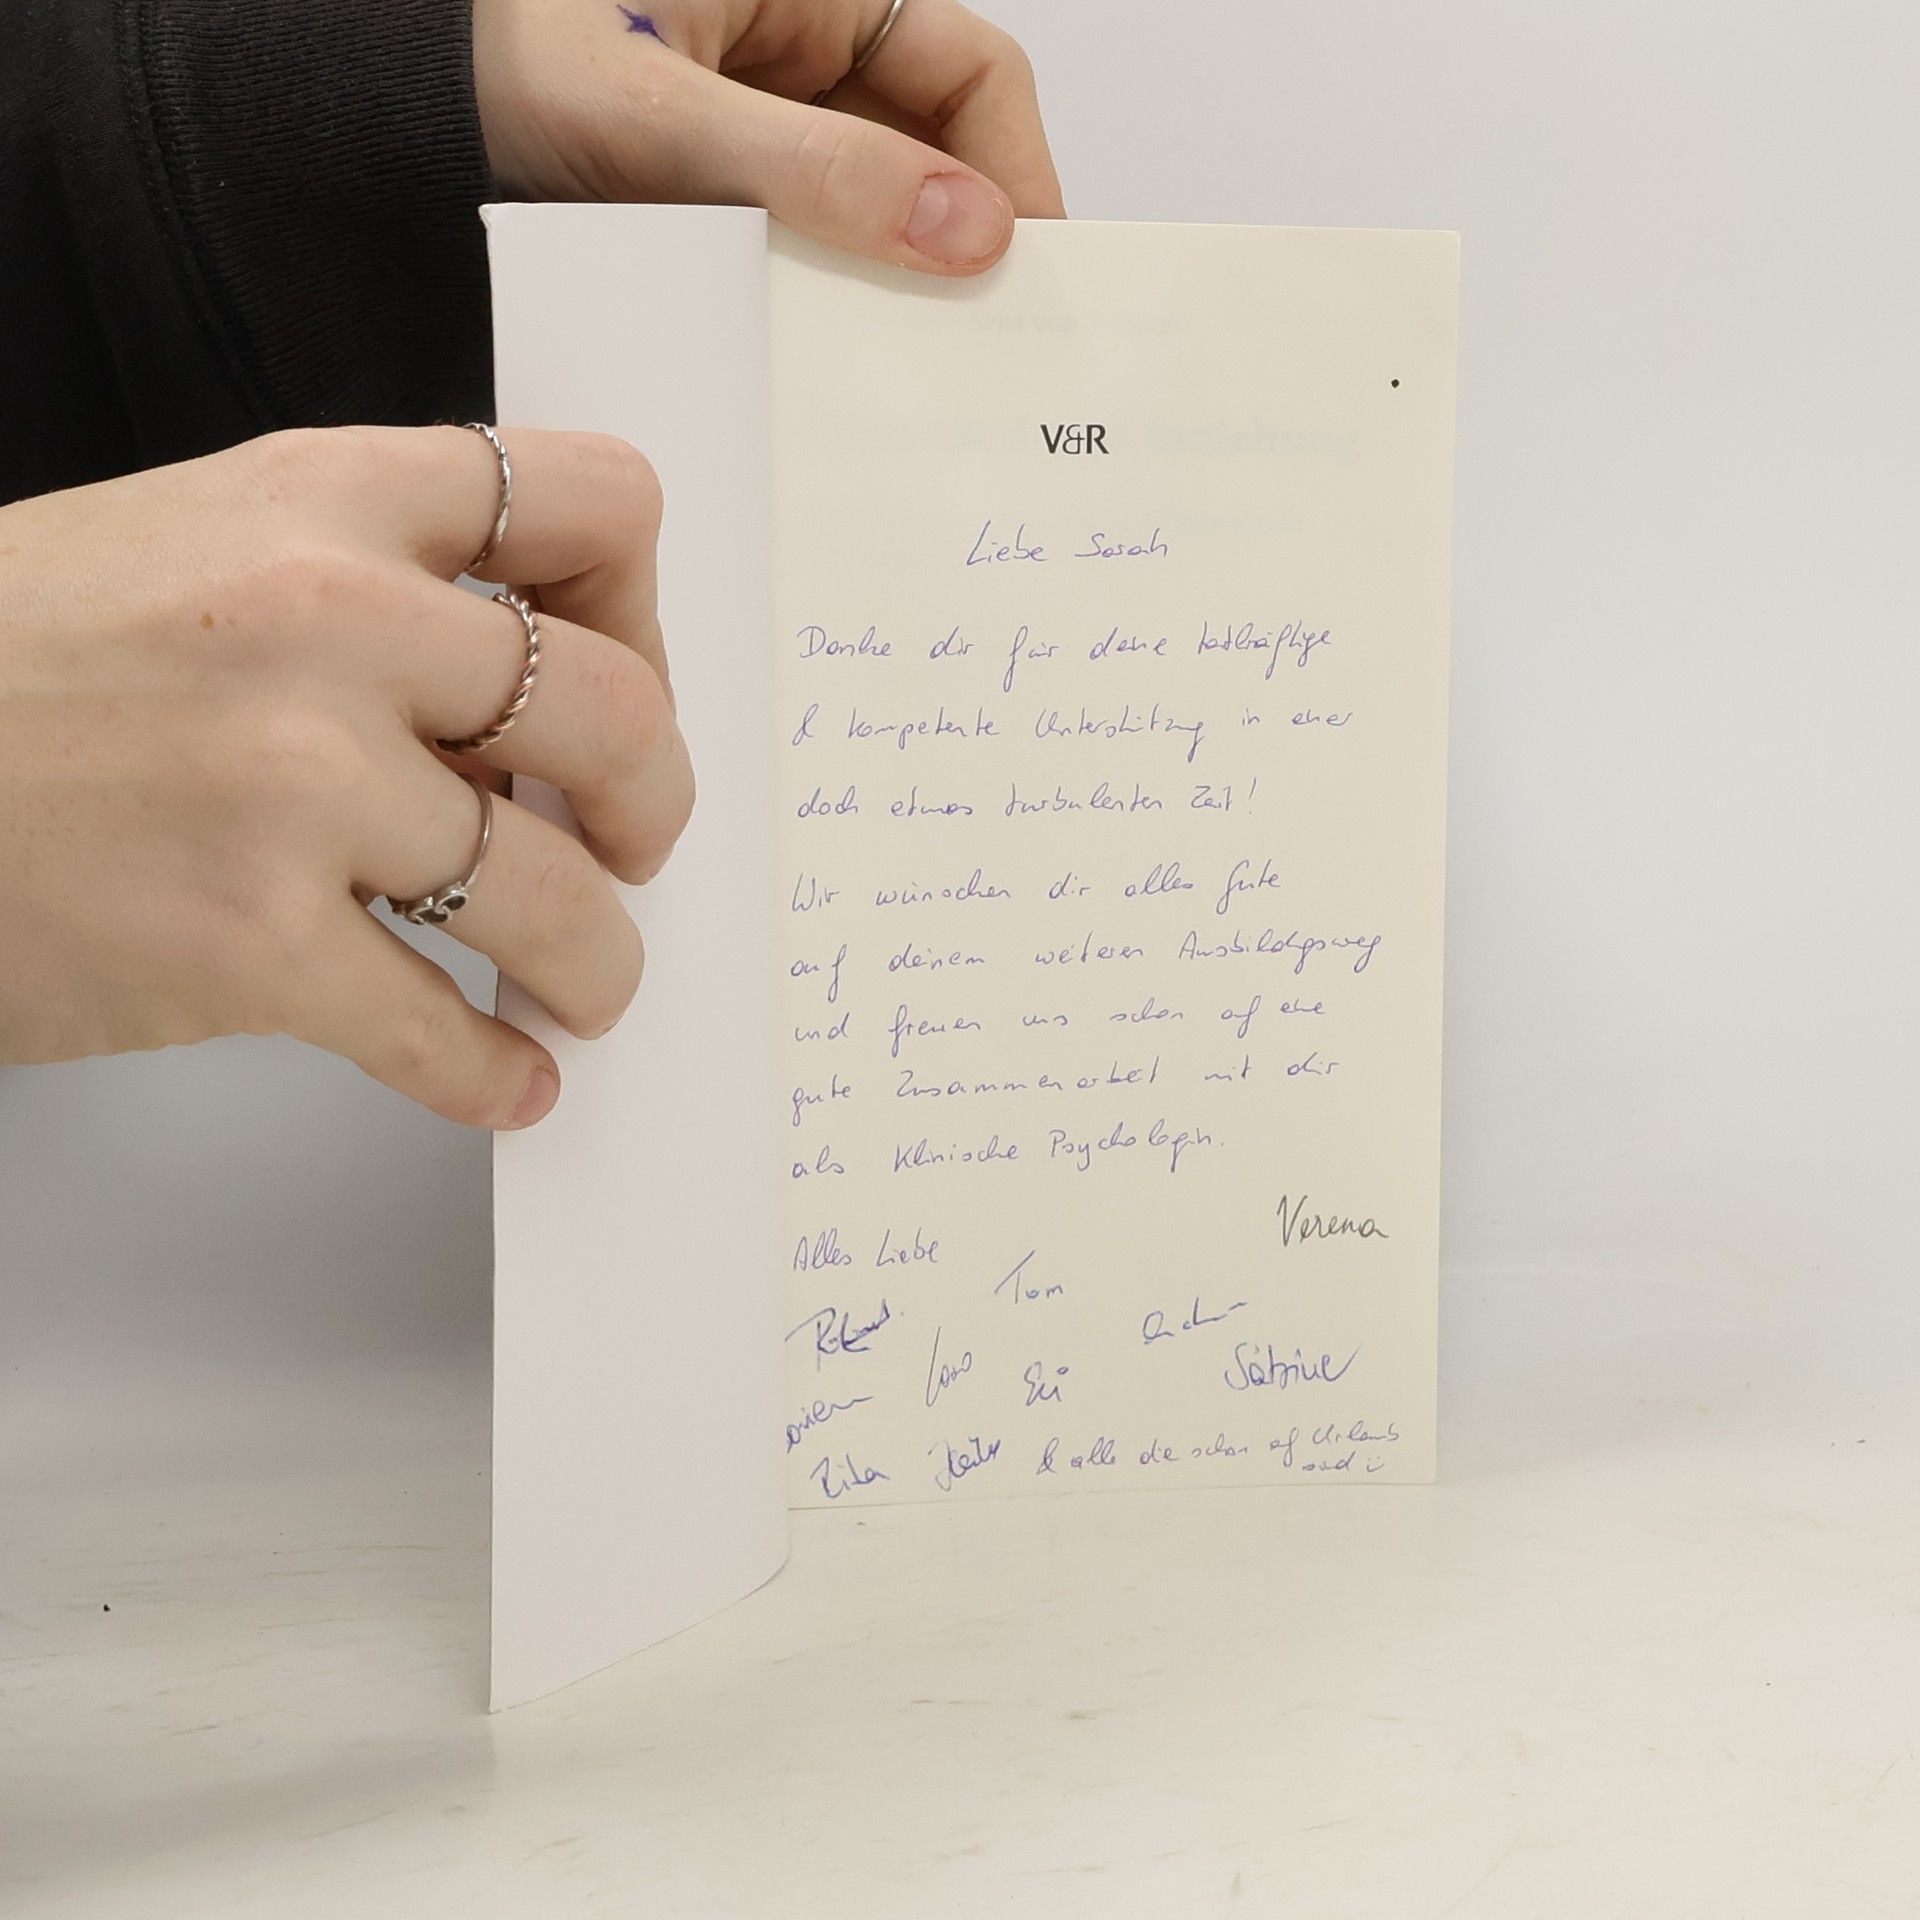 V&R
Liebe Sarah
Danke dir für deine tatkräftige
& kompetente Unterstützung in einer
doch etwas turbulenten Zeit!
Wir wünschen dir alles Gute
auf deinem weiteren Ausbildungsweg
und freuen uns schon auf eine
gute Zusammenarbeit mit dir
als Klinische Psychologin.
Verena
Alles Liebe
Tom
Sabine
Rita
& alle die schon auf Urlaub
sind ü